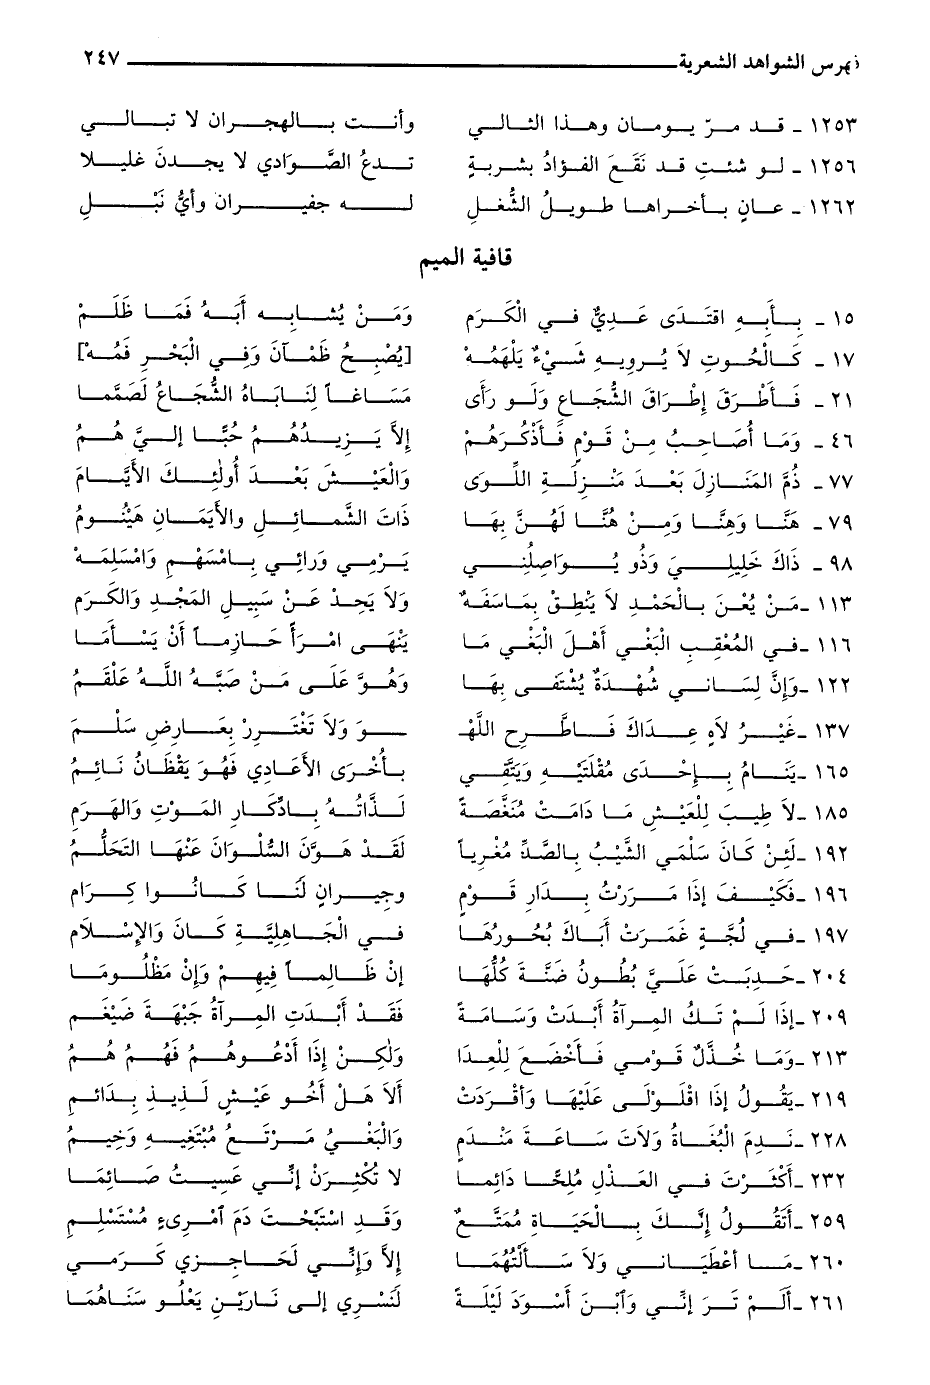 فهرس الشواهد الشعرية ٢٤٧
١٢٥٣ ـ قد مرّ يومان وهذا الثالي وأنت بالهجران لا تبالي
١٢٥٦ ـ لو شئت قد نَقَعَ الفؤادُ بشربةٍ تدعُ الصَّوادي لا يجدنَ غليلا
١٢٦٢ ـ عانٍ بأخراها طويلُ الشُّغلِ له جفيرانِ وأيُّ نَبْلِ
قافية الميم
١٥ ـ بأبِهِ اقتَدَى عَدِيٌّ في الْكَرَمْ وَمَنْ يُشَابِه أَبَهُ فَمَا ظَلَمْ
١٧ ـ كَالْحُوتِ لاَ يُرويهِ شَيْءٌ يَلْهَمُهْ [يُصْبِحُ ظَمْآنَ وَفِي الْبَحْرِ فَمُهْ]
٢١ ـ فَأَطْرَقَ إطْرَاقَ الشُّجَاعِ وَلَو رَأَى مَسَاغاً لِنَابَاهُ الشُّجَاعُ لَصَمَّمَا
٤٦ ـ وَمَا أُصَاحِبُ مِنْ قَوْمٍ فَأَذْكُرَهُمْ إلاَّ يَزِيدُهُمُ حُبًّا إلَيَّ هُمُ
٧٧ ـ ذُمَّ المَنَازِلَ بَعْدَ مَنْزِلَةِ اللَّوَى وَالْعَيْشَ بَعْدَ أُولَئِكَ الأيَّامِ
٧٩ ـ هَنَّا وَهِنَّا وَمِنْ هُنَّا لَهُنَّ بِهَا ذَاتَ الشَّمَائِلِ وَالأيْمَانِ هَيْنُومُ
٩٨ ـ ذَاكَ خَلِيلِي وَذُو يُوَاصِلُنِي يَرْمِي وَرَائِي بِامْسَهْمِ وَامْسَلِمَهْ
١١٣ ـ مَنْ يُعْنَ بِالْحَمْدِ لاَ يَنْطِقْ بِمَا سَفَهٌ وَلاَ يَحِدْ عَنْ سَبِيلِ المَجْدِ وَالكَرَمِ
١١٦ ـ في المُعْقِبِ الْبَغْيِ أَهْلَ الْبَغْيِ مَا يَنْهَى امْرَأً حَازِماً أَنْ يَسْأَمَا
١٢٢ ـ وَإنَّ لِسَانِي شُهْدَةٌ يُشْتَفَى بِهَا وَهُوَّ عَلَى مَنْ صَبَّهُ اللَّهُ عَلْقَمُ
١٣٧ ـ غَيْرُ لاَهٍ عِدَاكَ فَاطَّرِحِ اللَّهْـ ـوَ وَلاَ تَغْتَرِرْ بِعَارِضِ سَلْمِ
١٦٥ ـ يَنَامُ بِإحْدَى مُقْلَتَيْهِ وَيَتَّقِي بِأُخْرَى الأَعَادِي فَهُوَ يَقْظَانُ نَائِمُ
١٨٥ ـ لاَ طِيبَ لِلْعَيْشِ مَا دَامَتْ مُنَغَّصَةً لَذَّاتُهُ بِادِّكَارِ المَوْتِ وَالهَرَمِ
١٩٢ ـ لَئِنْ كَانَ سَلْمَى الشَّيْبُ بِالصَّدِّ مُغْرِياً لَقَدْ هَوَّنَ السُّلْوَانَ عَنْهَا التَّحَلُّمُ
١٩٦ ـ فَكَيْفَ إذَا مَرَرْتُ بِدَارِ قَوْمٍ وَجِيرَانٍ لَنَا كَانُوا كِرَامِ
١٩٧ ـ فِي لُجَّةٍ غَمَرَتْ أَبَاكَ بُحُورُهَا فِي الْجَاهِلِيَّةِ كَانَ وَالإسْلاَمِ
٢٠٤ ـ حَدِبَتْ عَلَيَّ بُطُونُ ضَبَّةَ كُلُّهَا إنْ ظَالِماً فِيهِمْ وَإنْ مَظْلُومَا
٢٠٩ ـ إذَا لَمْ تَكُ المِرآةُ أَبْدَتْ وَسَامَةً فَقَدْ أَبْدَتِ المِرآةُ جَبْهَةَ ضَيْغَمِ
٢١٣ ـ وَمَا خُذَّلٌ قَوْمِي فَأَخْضَعَ لِلْعِدَا وَلَكِنْ إذَا أَدْعُوهُمُ فَهُمُ هُمُ
٢١٩ ـ يَقُولُ إذَا اقْلَوْلَى عَلَيْهَا وَأَقْرَدَتْ أَلاَ هَلْ أَخُو عَيْشٍ لَذِيذٍ بِدَائِمِ
٢٢٨ ـ نَدِمَ الْبُغَاةُ وَلاَتَ سَاعَةَ مَنْدَمِ وَالْبَغْيُ مَرْتَعُ مُبْتَغِيهِ وَخِيمُ
٢٣٢ ـ أَكْثَرْتَ فِي العَذْلِ مُلِحًّا دَائِمَا لا تُكْثِرَنْ إنِّي عَسِيتُ صَائِمَا
٢٥٩ ـ أَتَقُولُ إنَّكَ بِالْحَيَاةِ مُمَتَّعٌ وَقَدِ اسْتَبَحْتَ دَمَ امْرِىءٍ مُسْتَسْلِمِ
٢٦٠ ـ مَا أَعْطَيَانِي وَلاَ سَأَلْتُهُمَا إلاَّ وَإنِّي لَحَاجِزِي كَرَمِي
٢٦١ ـ أَلَمْ تَرَ إنِّي وَابْنَ أَسْوَدَ لَيْلَةً لَنَسْرِي إلَى نَارَيْنِ يَعْلُو سَنَاهُمَا